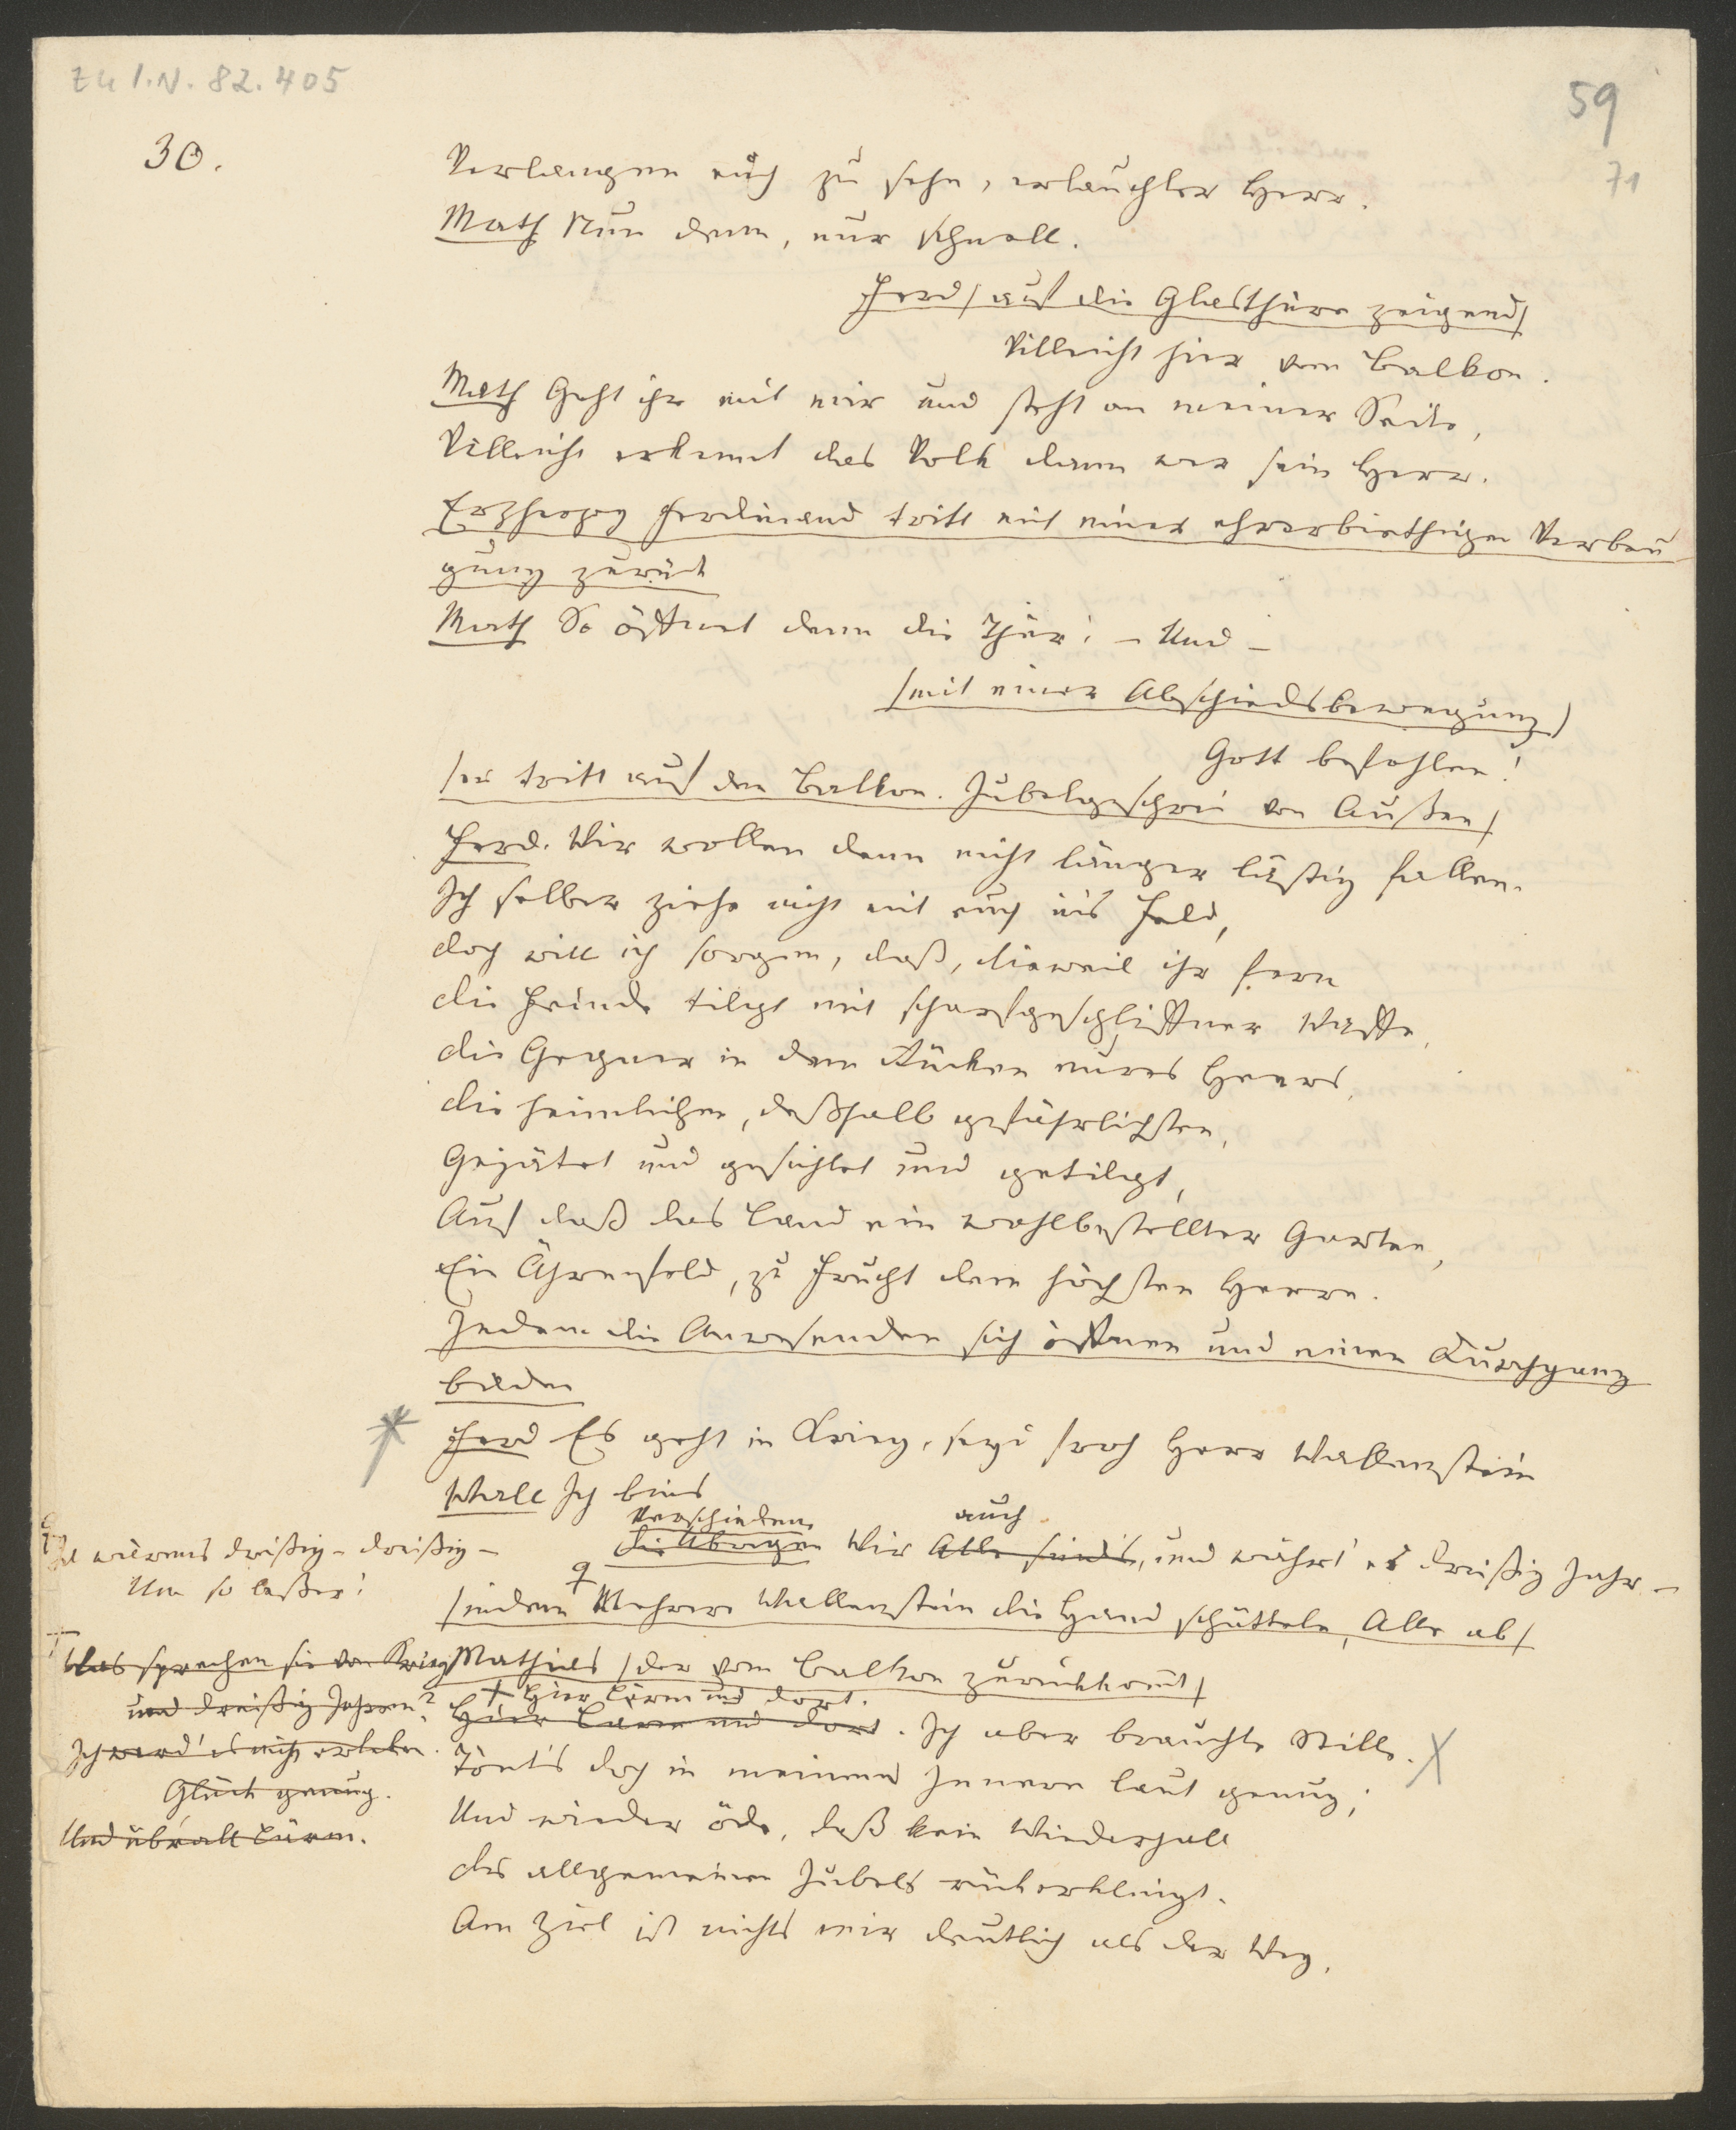 Zu I.N. 82.405
59
71
30.
Verlangen euch zu sehn, erlauchter Herr.
Math Nun denn, nur schnell.
Ferd /auf die Glasthüre zeigend/
Villeicht hier vom Balkon.
Math Geht ihr mit mir und steht an meiner Seite,
Villeicht erkennt das Volk dann wer sein Herr.
Erzherzog Ferdinand tritt mit einer ehrerbiethigen Verbeu
gung zurück
Math So öffnet denn die Thür! – Und –
/mit einer Abschiedsbewegung/
Gott befohlen!
/er tritt auf den Balkon. Jubelgeschrei von Außen/
Ferd. Wir wollen denn nicht länger lästig fallen.
Ich selber ziehe nicht mit euch ins Feld,
doch will ich sorgen, daß, dieweil ihr fern
die Feinde tilgt mit scharfgeschliffner Waffe,
die Gegner in dem Rücken eures Heers,
die heimlichen, deßhalb gefährlichsten,
Gejätet und gesichtet und getilgt,
Auf daß das Land ein wohlbestellter Garten,
Ein Ährenfeld, zu Frucht dem höchsten Herrn.
Indem die Anwesenden sich öffnen und einen Durchgang
bilden
Ferd Es geht in Krieg, seyd froh Herr Wallenstein
Wall Ich bins
Verschiedene
auch
die Übrigen Wir Alle sind's, und währt' es dreißig Jahr –
Und wärens dreißig – dreißig –
Um so besser!
/indem Mehrere Wallenstein die Hand schütteln, Alle ab/
Was sprechen sie von Krieg
und dreißig Jahren?
Ich werd' es nicht erleben.
Glück genug.
Und überall Lärm.
Mathias /der vom Balkon zurückkömt/
Hier Lärm und dort.
Hier Lärm und dort. Ich aber brauchte Stille.
Tönt's doch in meinem Innern laut genug;
Und wieder öde, daß kein Wiederhall
des allgemeinen Jubels rückerklingt.
Am Ziel ist nichts mir deutlich als der Weg,